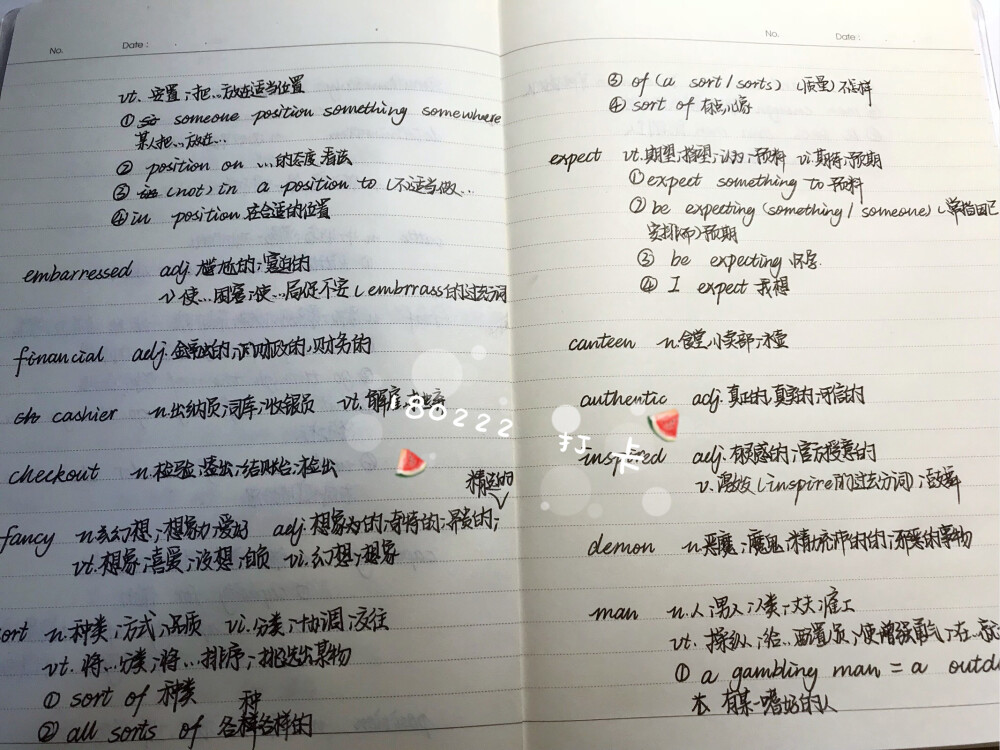 No.
Date:
vt. 安置;把…放在适当位置
① someone position something somewhere
某人把…放在…
② position on …的态度看法
③ (not) in a position to (不适当做…
④ in position 在合适的位置
embarressed adj. 尴尬的;窘迫的
v 使…困窘;使…局促不安 (embrrass的过去分词
financial adj. 金融的;财政的,财务的
cashier n.出纳员;司库;收银员 vt. 解雇;
checkout n.检验;签出;结账台;检出
精选的
fancy n.幻想;想象力;爱好 adj.想象力的;奇特的;昂贵的;
vt.想象;喜爱;设想;自负 vi.幻想;想象
ort n.种类;方式;品质 vi.分类;协调;交往
vt. 将…分类;将…排序;挑选出某物
① sort of 种类
种
② all sorts of 各样各样的
No.
Date:
③ of (a sort / sorts) (质量)不怎样
④ sort of 有点儿
expect vt.期望;指望;认为;预料 vi.期待;预期
① expect something to 预料
② be expecting (something / someone) (常指自己
安排好)预期
③ be expecting 怀孕
④ I expect 我想
canteen n.食堂,小卖部;水壶
authentic adj. 真正的,真实的;可信的
80222 打卡
inspired adj. 有灵感的;官方授意的
v. 激发 (inspire的过去分词);鼓舞
demon n.恶魔;魔鬼;精力充沛的的;邪恶的事物
man n.人;男人;人类;丈夫;雇工
vt. 操纵;给…配置人员;使增强勇气;在…
① a gambling man = a outd
有某一嗜好的人